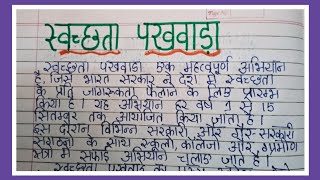 स्वच्छता पखवाडा
स्वच्छता पखवाडा एक महत्वपूर्ण अभियान
है, जिसे भारत सरकार ने देश में स्वच्छता
के प्रति जागरूकता फैलाने के लिए प्रारम्भ
किया है। यह अभियान हर वर्ष 1 से 15
सितम्बर तक आयोजित किया जाता है।
इस दौरान विभिन्न सरकारी, और गैर-सरकारी
संगठनों के साथ स्कूलों, कॉलेजों और, ग्रामीण
क्षेत्रों में सफाई अभियान चलाए जाते है।
स्वच्छता पखवाडा का